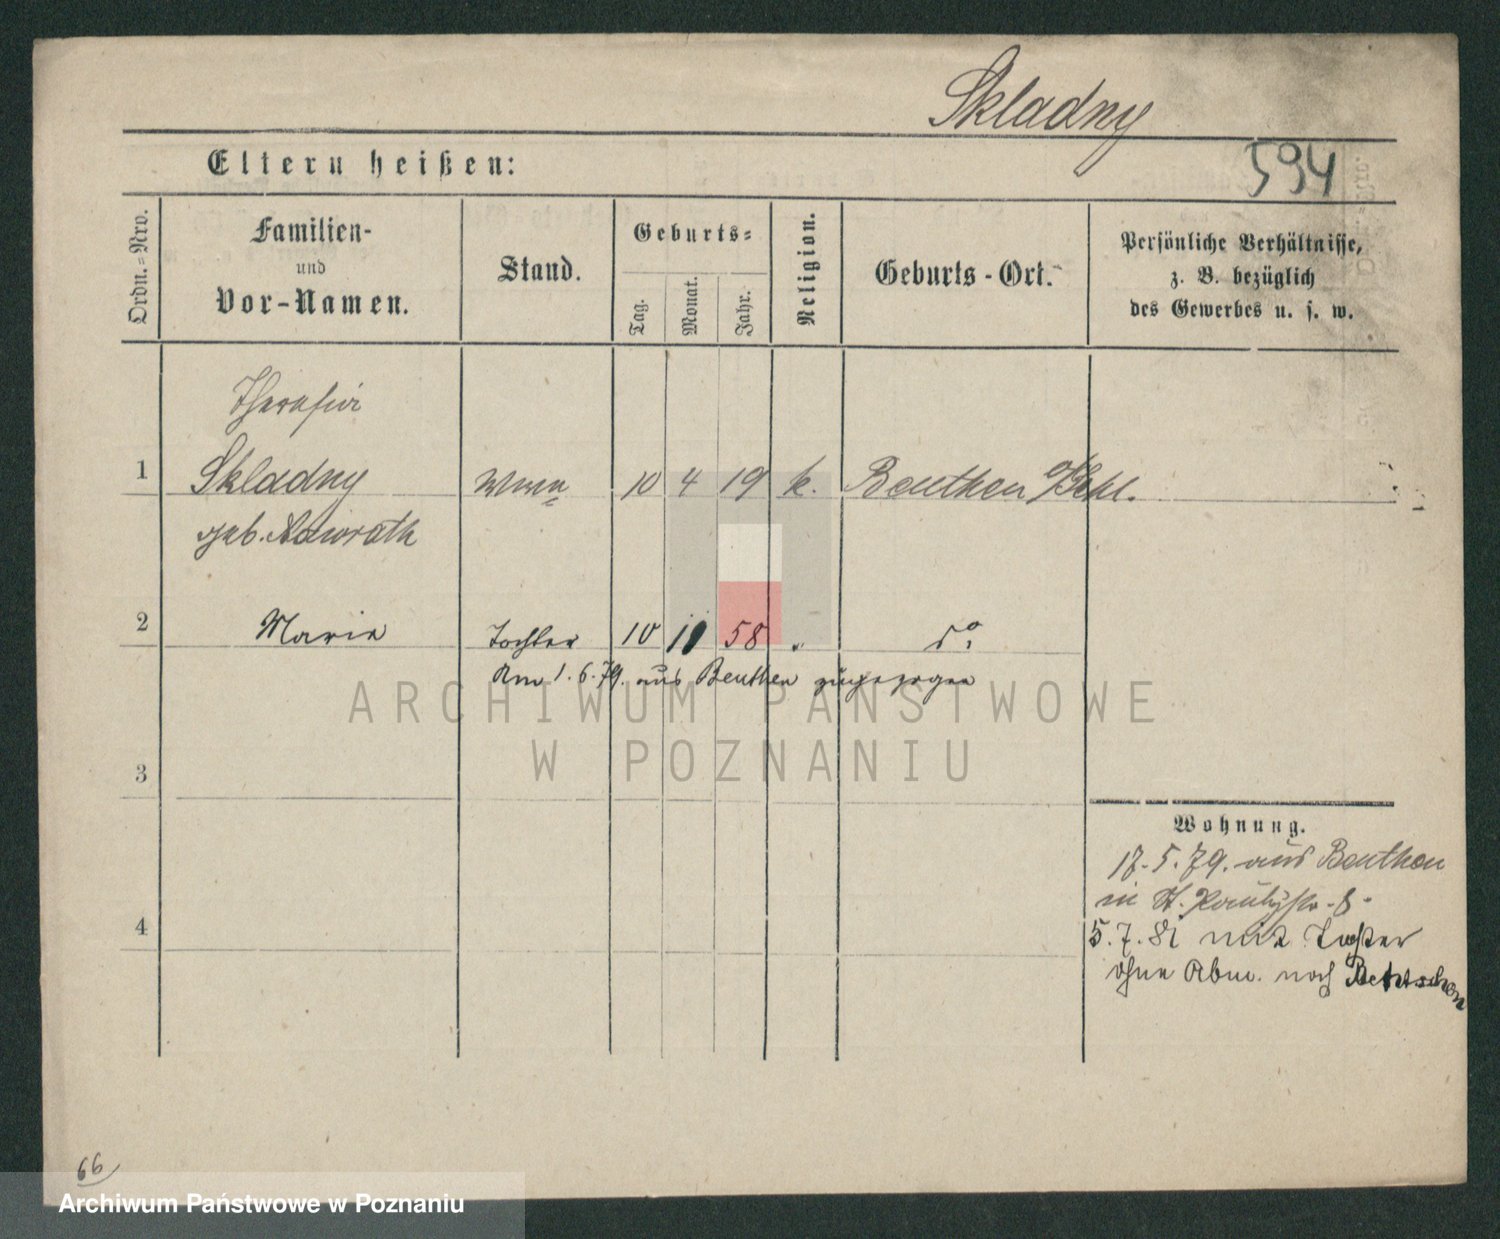 Skladny
594
Eltern heißen:
Ordn.=Nro.
Familien-
und
Vor-Namen.
Stand.
Geburts=
Tag.
Monat.
Jahr.
Religion.
Geburts-Ort.
Persönliche Verhältnisse,
z. B. bezüglich
des Gewerbes u. s. w.
1
Skladny
geb. Nawrath
10 4 19 k. Beuthen
2 Maria Tochter 10 58 " do
Am 1.6.79. aus Beuthen zugezogen
3
4
Wohnung.
17.5.79. aus Beuthen
in St. 8.
5.7.81 mit Tochter
ohne Abm. nach Bentschen
66
ARCHIWUM PAŃSTWOWE
W POZNANIU
Archiwum Państwowe w Poznaniu